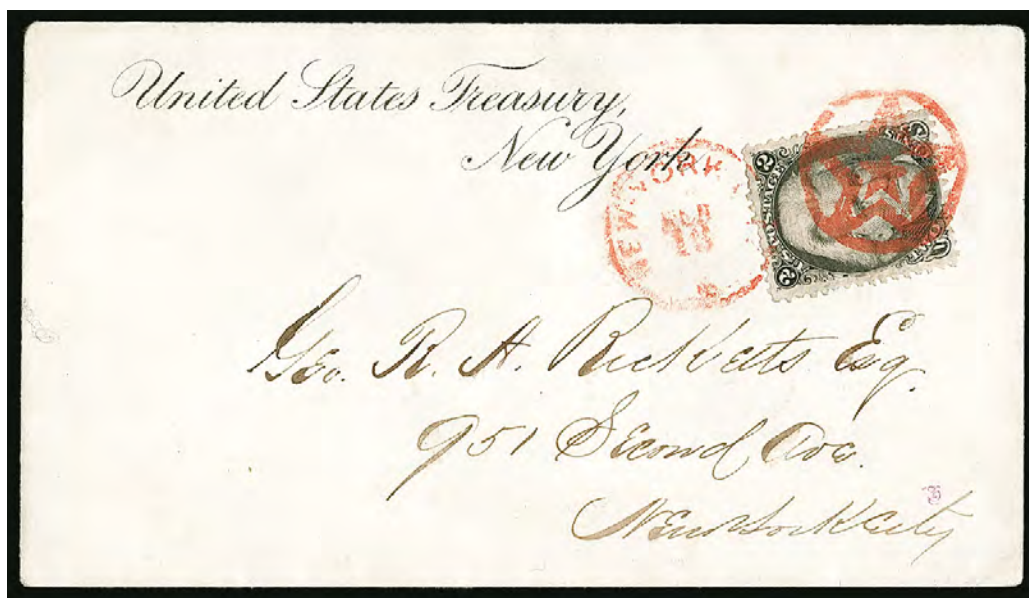 United States Treasury,
New York
NEW YORK
2
U.S. POSTAGE
2
Geo. R. A. Ricketts Esq.
951 Second Ave.
New York City